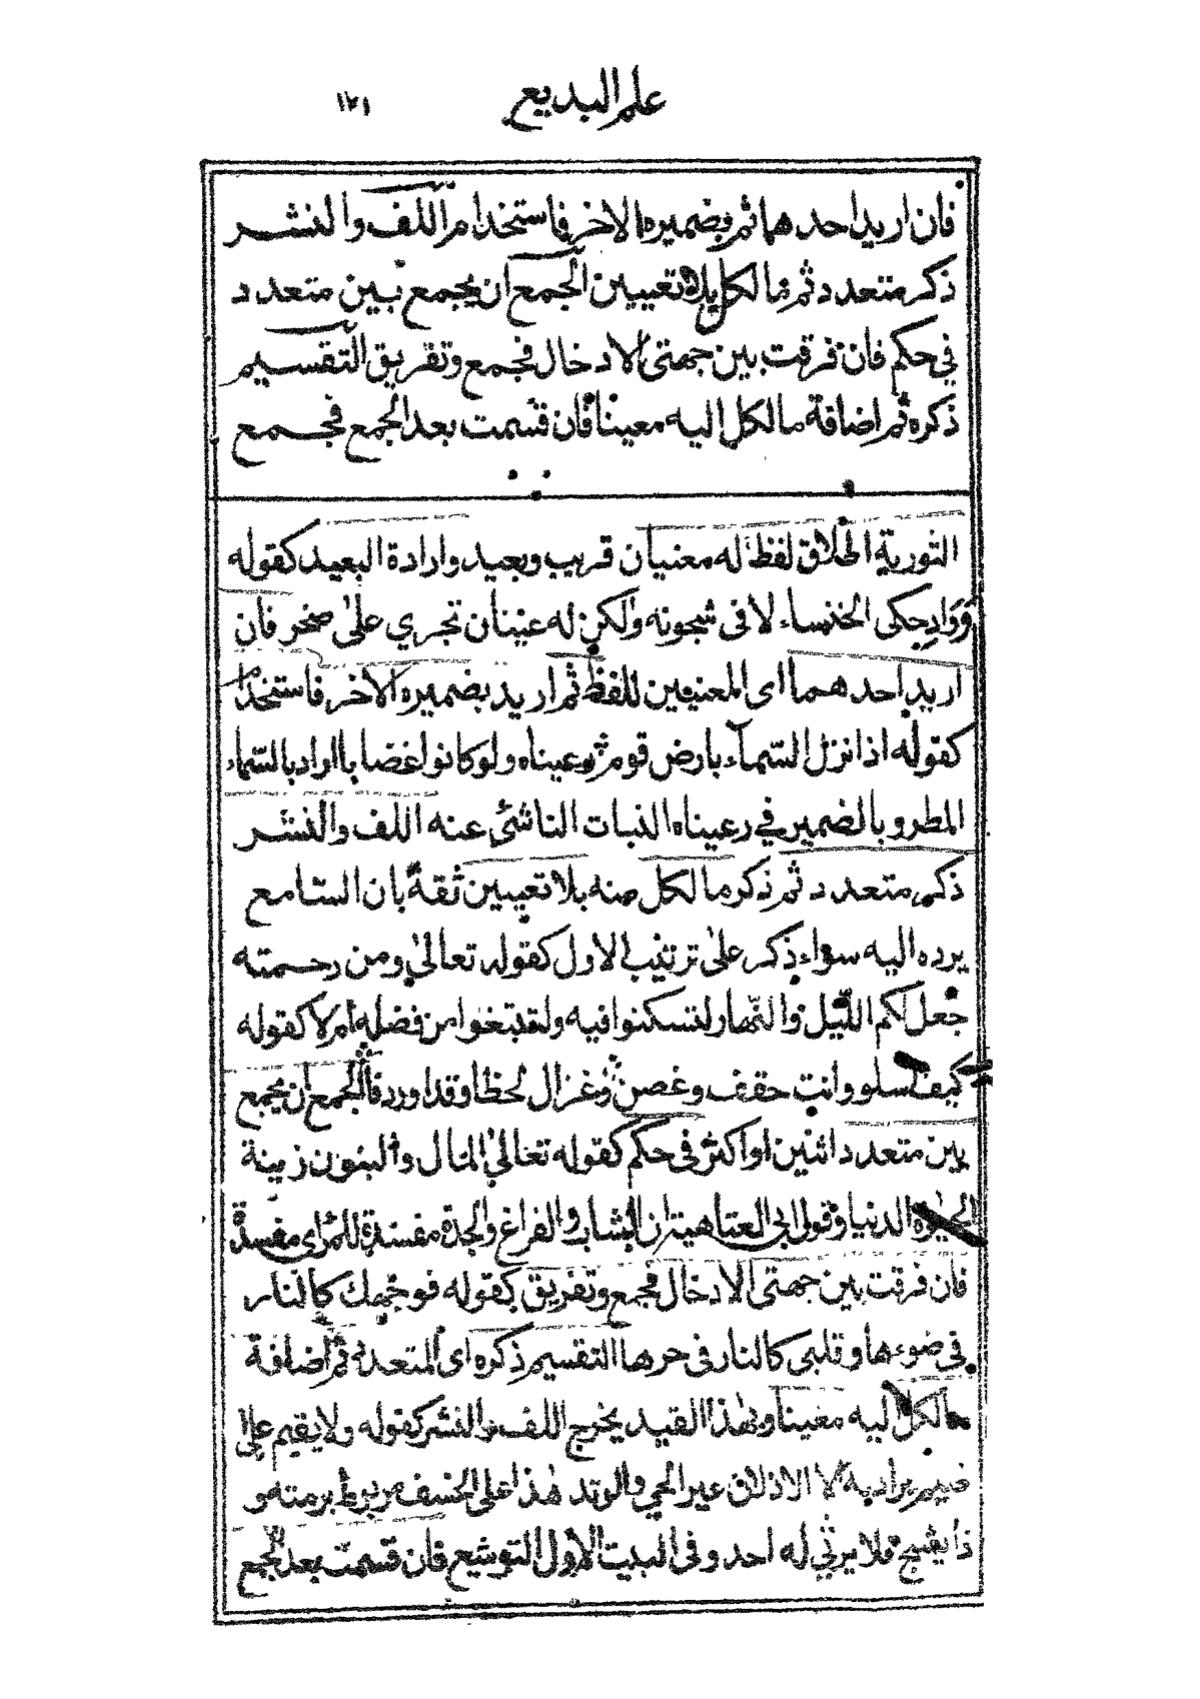 علم البديع ١٢١
فان اريد احدهما ثم بضميره الاخر فاستخدام اللف والنشر
ذكر متعدد ثم ما لكل بلا تعيين الجمع ان يجمع بين متعدد
في حكم فان فرقت بين جهتى الادخال فجمع وتفريق التقسيم
ذكره ثم اضافة ما لكل اليه معينا فان قسمت بعد الجمع فجمع
التورية اطلاق لفظ له معنيان قريب وبعيد وارادة البعيد كقوله
وواد حكى الخنساء لا فى شجونه ولكن له عينان تجري على صخر فان
اريد احدهما اى المعنيين للفظ ثم اريد بضميره الاخر فاستخدام
كقوله اذا نزل السماء بارض قوم رعيناه ولو كانوا غضابا اراد بالسماء
المطر وبالضمير في رعيناه النبات الناشئ عنه اللف والنشر
ذكر متعدد ثم ذكر ما لكل منه بلا تعيين ثقة بان السامع
يرده اليه سواء ذكر على ترتيب الاول كقوله تعالى ومن رحمته
جعل لكم الليل والنهار لتسكنوا فيه ولتبتغوا من فضله ام لا كقوله
كيف اسلو وانت حقف وغصن وغزال لحظا وقدا وردفا الجمع ان يجمع
بين متعدد اثنين او اكثر فى حكم كقوله تعالى المال والبنون زينة
الحيوة الدنيا وقول ابى العتاهية ان الشباب والفراغ والجدة مفسدة للمرء اى مفسدة
فان فرقت بين جهتى الادخال فجمع وتفريق كقوله فوجهك كالنار
في ضوءها وقلبى كالنار فى حرها التقسيم ذكره اى المتعدد ثم اضافة
ما لكل اليه معينا وبهذا القيد يخرج اللف والنشر كقوله ولا يقيم على
ضيم يراد به الا الاذلان عير الحي والوتد هذا على الخسف مربوط برمته و
ذا يشج فلا يرثي له احد وفى البيت الاول التوشيع فان قسمت بعد الجمع